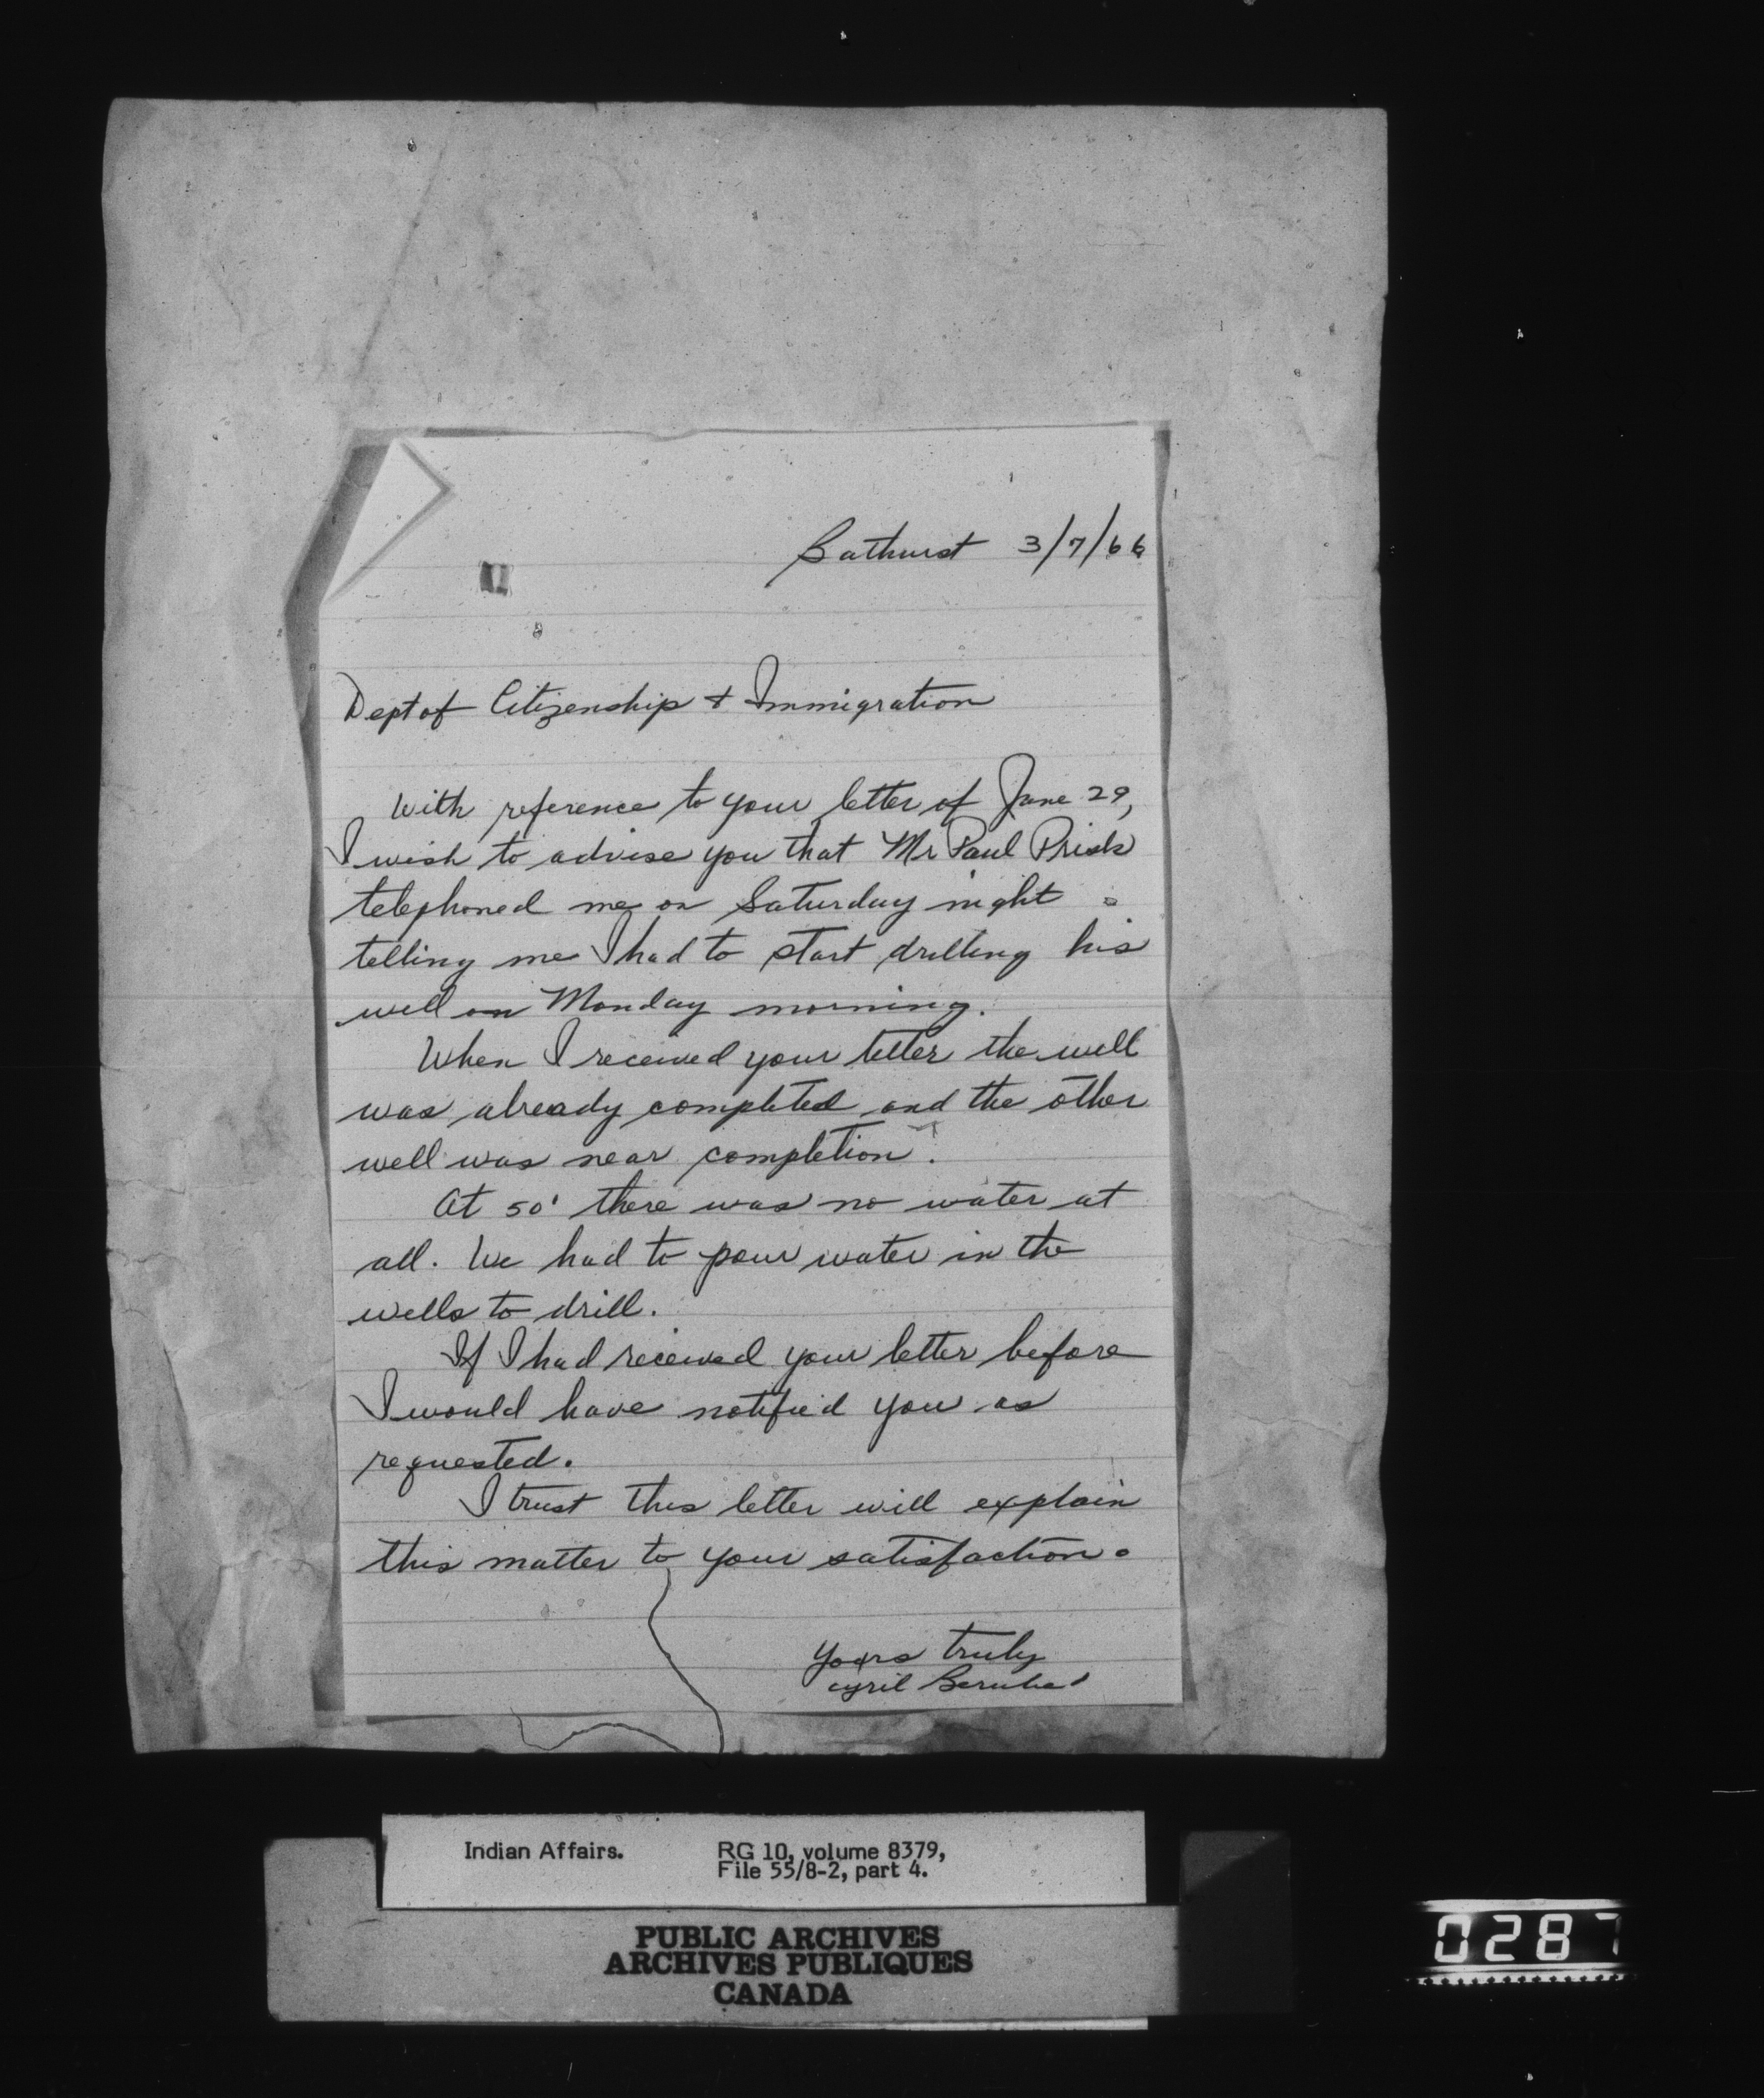 Bathurst 3/7/66
Dept of Citizenship & Immigration
With reference to your letter of June 29,
I wish to advise you that Mr Paul Prisk
telephoned me on Saturday night
telling me I had to start drilling his
well on Monday morning.
When I received your letter the well
was already completed and the other
well was near completion.
At 50' there was no water at
all. We had to pour water in the
wells to drill.
If I had received your letter before
I would have notified you as
requested.
I trust this letter will explain
this matter to your satisfaction.
Yours truly
Cyril Berube
Indian Affairs. RG 10, volume 8379,
File 55/8-2, part 4.
PUBLIC ARCHIVES
ARCHIVES PUBLIQUES
CANADA
0287